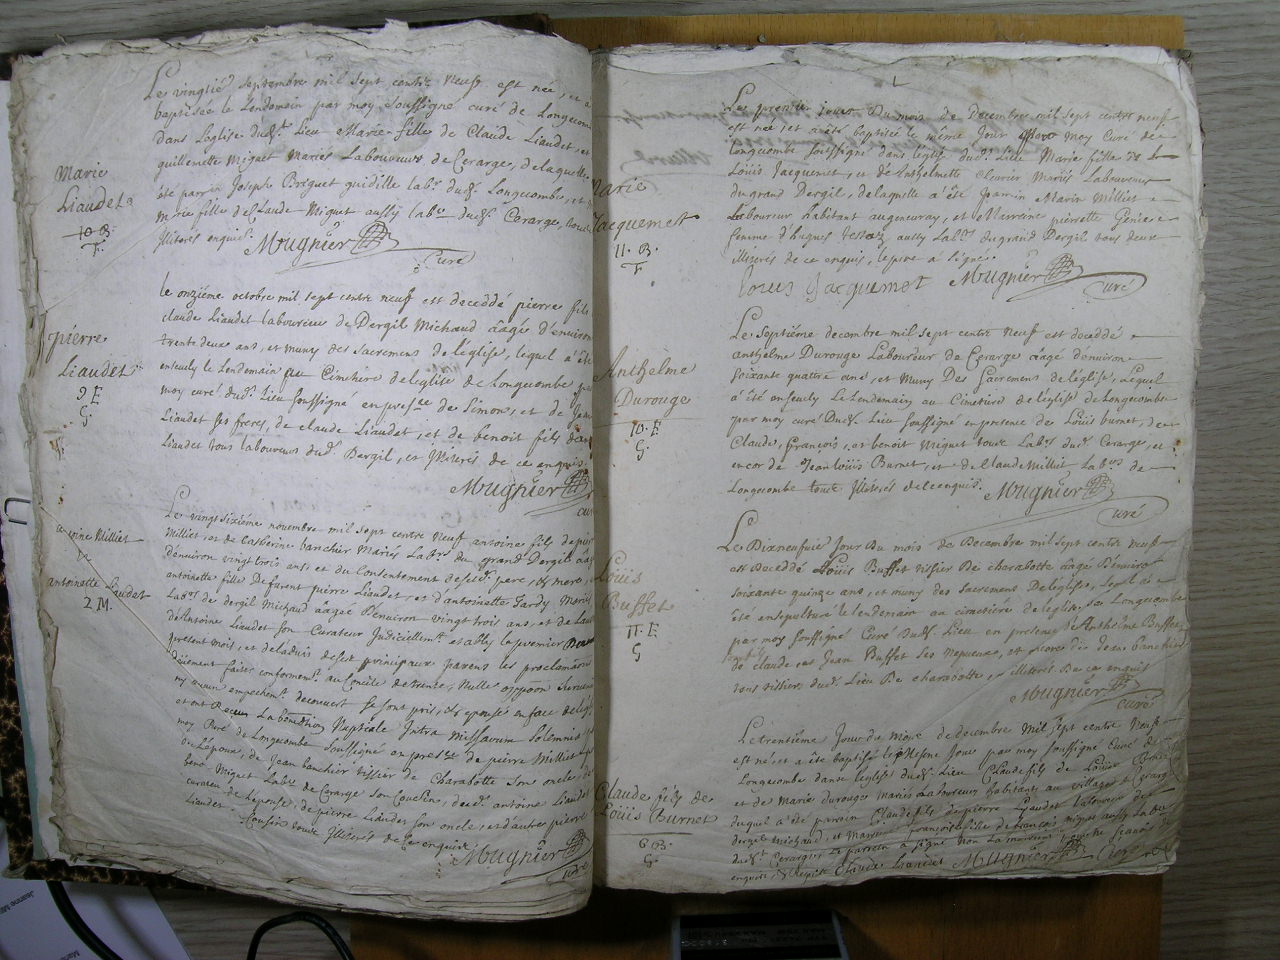 Le vingtié septembre mil sept centz neuf est née, et a
baptisée le lendemain par moy soussigné curé de Longecom
dans Leglise dud. Lieu Marie fille de Claude Liaudet, et
guillemette Miguet Mariés Laboureurs de Cerarge, de laquelle
été parrin Joseph
marie fille de Claude Miguet aussy lab. dud. Cerarge, tous
Illiterés enquis. Mugnier
Curé
Marie
Liaudet
10 B.
le onziéme octobre mil sept centz neuf est deceddé pierre fils
claude Liaudet laboureur de Dergil Michaud âagé d'environ
trente deux ans, et muny des sacremens de l'église, lequel a été
enseuly le Lendemain au Cimetiere de leglise de Longecombe par
moy curé dud. Lieu soussigné en pres.ce de Simon, et de Jean
Liaudet ses freres, de claude Liaudet, et de benoit fils de
Liaudet tous laboureurs dud. Dergil, et Illiterés de ce enquis.
Mugnier
curé
pierre
Liaudet
9 E
G
Le vingt sixiéme novembre mil sept centz neuf antoine fils de pier
Milliet, et de Catherine banchier Mariés Lab.rs du grand Dergil âagé
d'environ vingt trois ans et du Consentement de sesd. pere, & mere,
antoinette fille de furent pierre Liaudet, et d'antoinette Tardy Mariés
Lab.rs de dergil Michaud âagée d'environ vingt trois ans, et de
d'Antoine Liaudet son Curateur Judiciellem.t establis le premier
present mois, et de ladvis de ses principaux parens les proclamations
dûement faites conformem.t au Concile de trente, Nulle oppôon
ny aucun empechem.t decouvert se sont pris, & epousés en face de leglise
et ont Receu La bénédiction Nuptiale Intra Missarum Solemnia par
moy Curé de Longecombe soussigné en pres.ce de pierre Milliet
de Lépoux, de Jean banchier tissier de Charabotte son oncle, de
benoit Miguet Lab.r de Cerarge son Cousin, dud. antoine Liaudet
curateur de Lépouse, de pierre Liaudet son oncle, et d'autre pierre
Liaudet Cousin tous Illiterés de ce enquis. Mugnier
curé
antoine Milliet
&
antoinette Liaudet
2 M.
Le premier jour du mois de decembre mil sept centz neuf
est née, et a été baptisée le même Jour par moy Curé de
longecombe soussigné dans leglise dud. Lieu Marie fille de
Loüis Jacquemet, et de Anthelmette Mariés Laboureurs
du grand Dergil, de laquelle a été parrin Marin Milliet
Laboureur habitant et Marraine pierrette Genie
femme d'hugues aussy Lab.r du grand Dergil tous deux
illiterés de ce enquis, le pere a signé.
louis Jacquemet Mugnier
curé
Marie
Jacquemet
11. B.
Le Septiéme decembre mil sept centz Neuf est deceddé
anthelme Durouge Laboureur de Cerarge âagé d'environ
soixante quattre ans, et Muny Des Sacremens de léglise, Lequel
a été enseuly Le Lendemain au Cimetiere de leglise de Longecombe
par moy curé Dud. Lieu soussigné en presence de Loüis burnet, de
Claude, françois, et benoit Miguet tous Lab.rs dud. Cerarge, et
encor de Jean loüis Burnet, et de Claude Milliet Lab.rs de
Longecombe tous Illiterés de ce enquis. Mugnier
curé
Anthelme
Durouge
10. E
G
Le Dixneufvié Jour Du mois de Decembre mil sept centz neuf
est Deceddé Loüis Buffet tissier de charabotte âagé D'environ
soixante quinze ans, et muny des sacremens De léglise, lequel a
été ensepulturé le lendemain au cimetiere de leglise de Longecombe
par moy soussigné Curé Dud. Lieu en presence d'Anthelme Buffet
de claude et Jean Buffet ses Nepveux, et encores de Jean banchier
tous tissiers dud. Lieu De charabotte, illiterés De ce enquis
Mugnier
curé
Loüis
Buffet
11. E
G
Le trentiéme Jour du Mois de decembre Mil sept centz Neuf
est né, et a été baptisé le Mesme Jour par moy soussigné Curé de
Longecombe dans leglise dud. Lieu Claude fils de Loüis Burnet
et de Marie durouge Mariés Laboureurs habitant au village de Cerarge
duquel a été parrain Claude fils de pierre Liaudet laboureur de
dergil michaud, et Marraine françoise fille de francois miguet aussy Lab.r
dud. Cerarge, Le parrain a signé Non La marraine
enquis, & Requis Claude Liaudet Mugnier curé
Claude fils de
Loüis Burnet
6 B.
G.